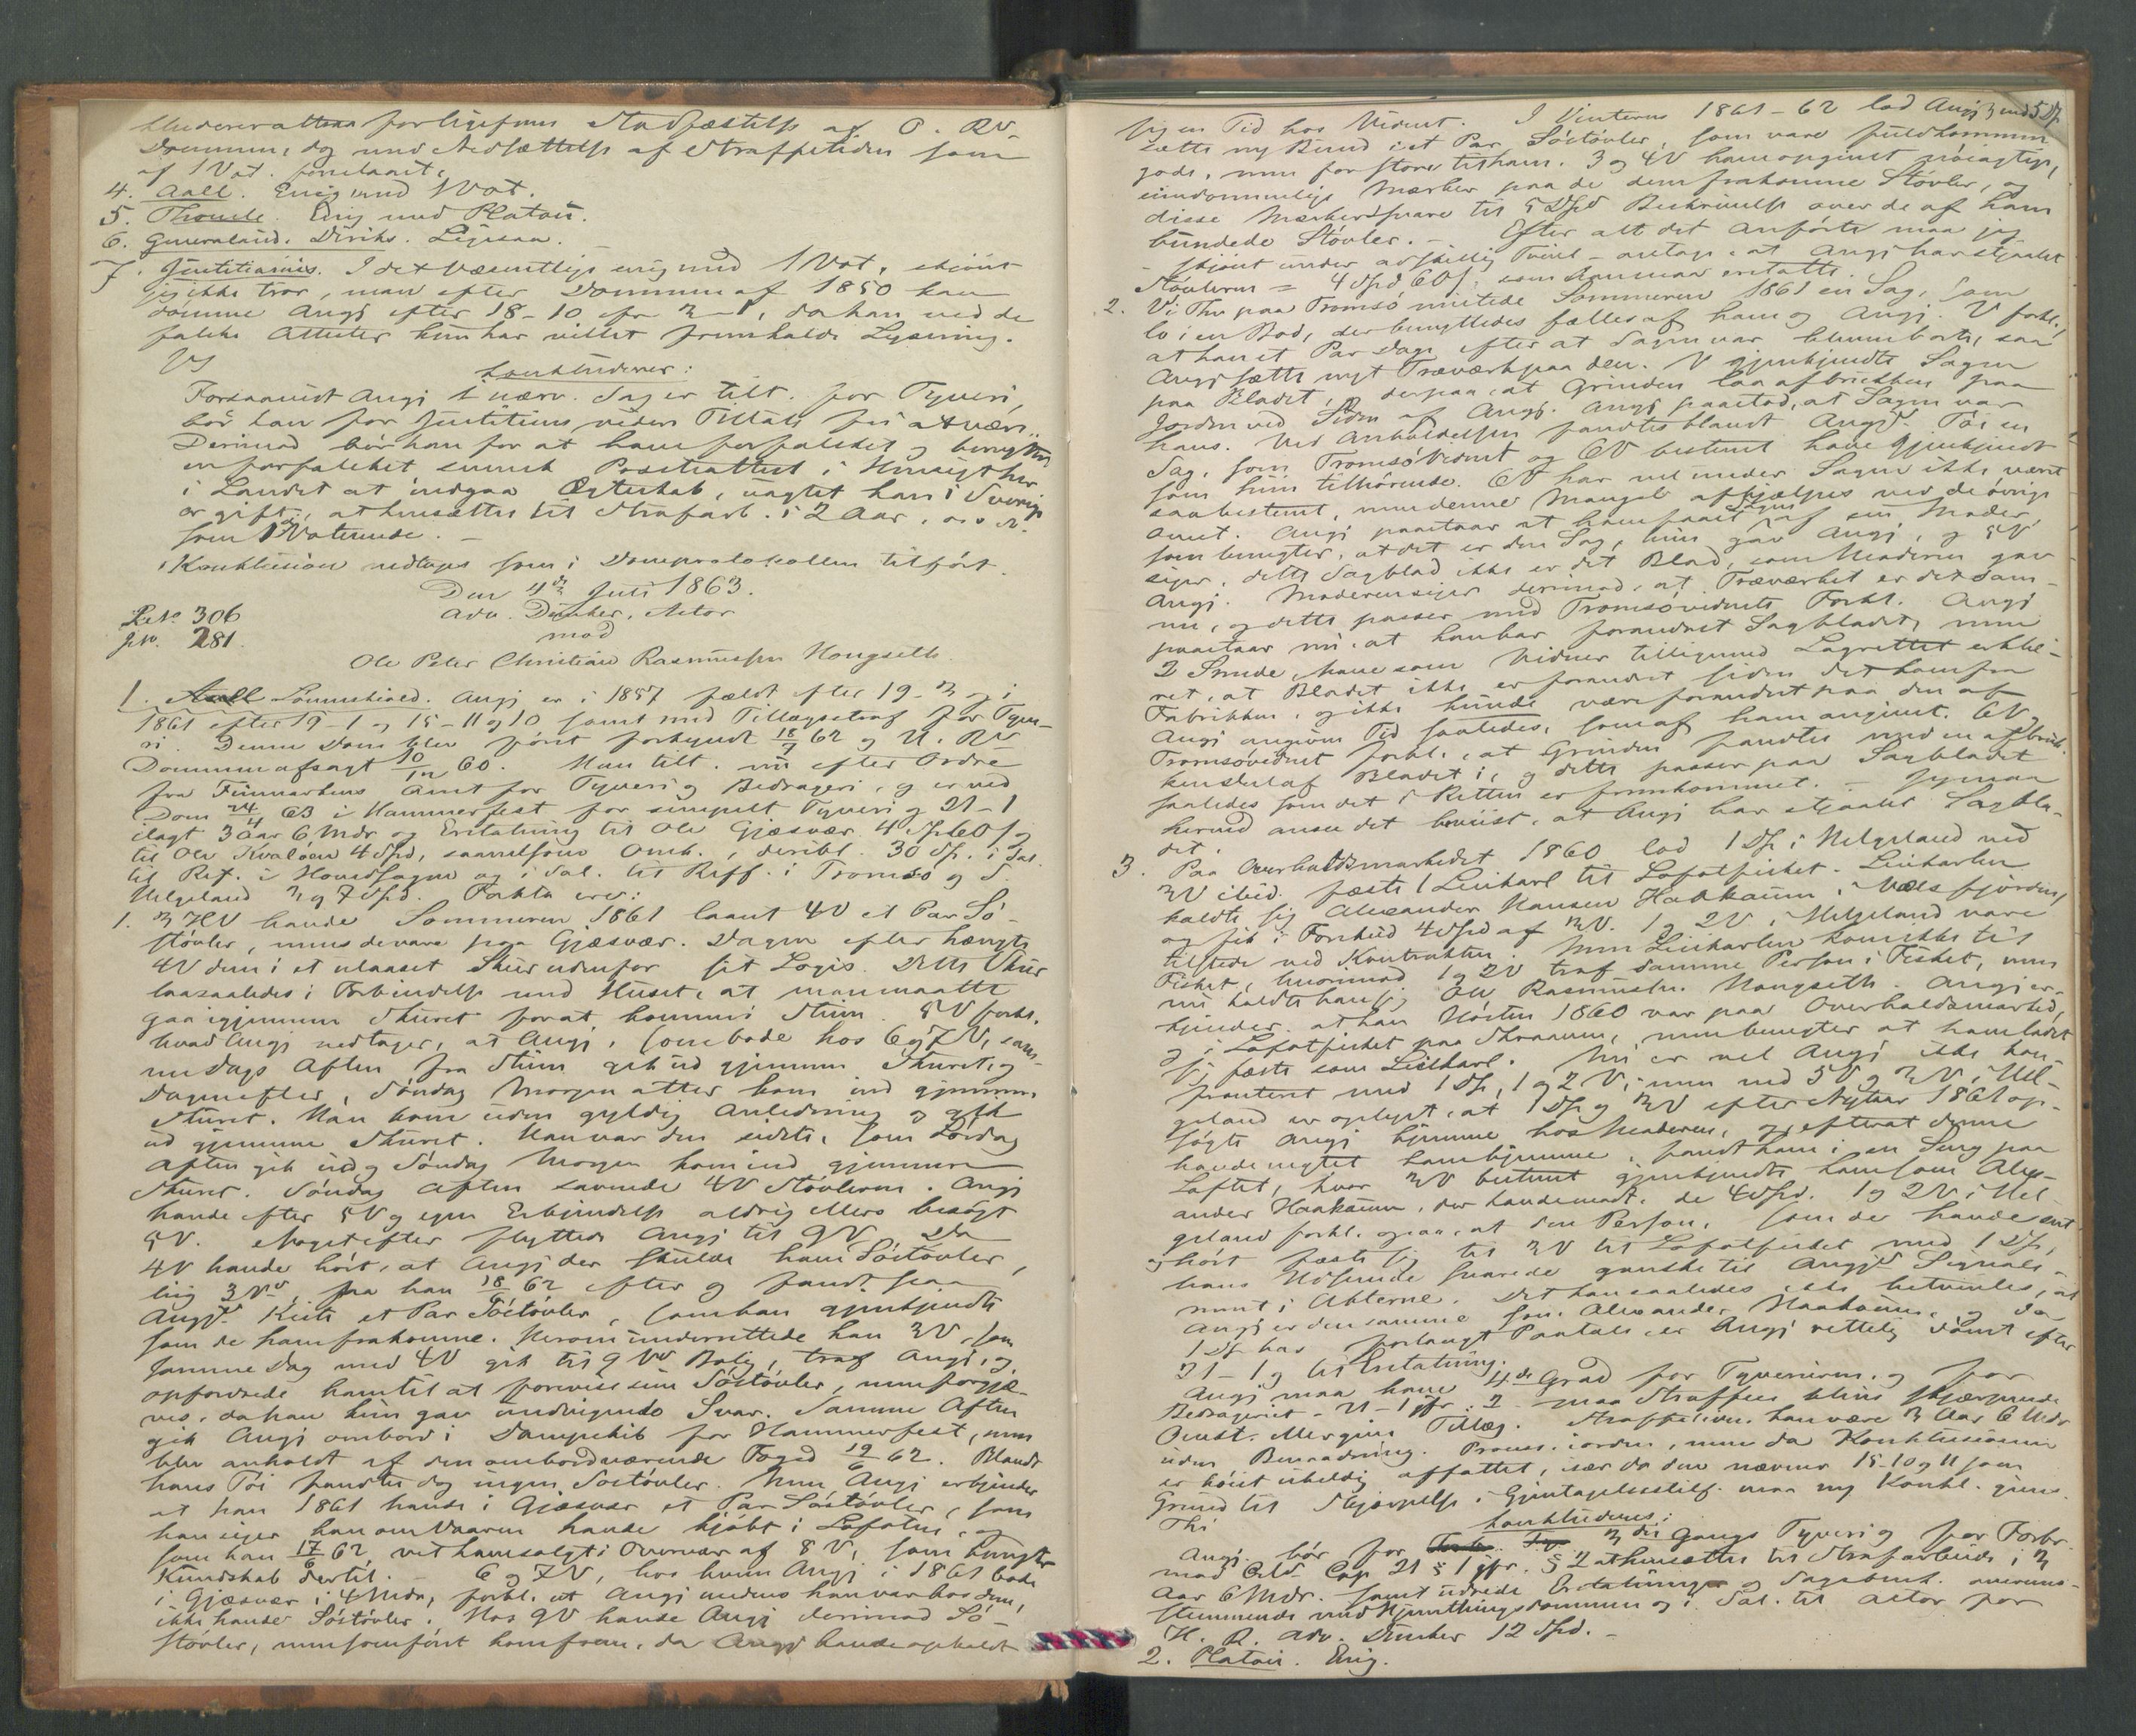 Underrettens forligesom Stadfæstelse af O. RV-
Dommen, dog med Nedsættelse af Straffetiden som
af 1 Vot. foreslaaet.
4. Aall. Enig med 1 Vot.
5. Thomle. Enig med Platou.
6. Generalaud. Diriks. Ligesaa.
7. Justitiarius. I det Væsentlige enig med 1 Vot., skjönt
jeg ikke tror, man efter Dommen af 1850 kan
dömme Angj efter 18-10 cfr 3-1, da han ved de
falske Attester kun har villet fremkalde Lysning.
Thi
Konkluderes:
Forsaavidt Angj i nærv. Sag er tilt. for Tyveri,
bör han for Justitiens videre Tiltale fri at være.
Derimod bör han for at have forfalsket og benyttet
en forfalsket svensk Præsteattest i Hensigt her
i Landet at indgaa Ægteskab, uagtet han i Sverige
er gift, at hensættes til Strafarb. i 2 Aar, o.s.v.
som 1 Voterende. -
Konklusion vedtoges som i Domprotokollen tilfört.
Den 4de Juli 1863.
Adv. Dunker, Actor
mod
Ole Peter Christian Rasmussen Hongseth.
R.No. 306
J.No. 281.
1. Aall Lövenskiold. Angj er i 1857 fældt efter 19-3 og i
1861 efter 19-1 og 15-11 og 10 samt med Tillægsstraf for Tyve-
ri. Denne Dom blev först forkyndt 18/7 62 og U. RV-
Dommen afsagt 10/12 60. Han tilt. nu efter Ordre
fra Finmarkens Amt for Tyveri og Bedrageri, og er ved
Dom 24/4 63 i Hammerfest for simpelt Tyveri og 21-1
ilagt 3 Aar 6 Mdr og Erstatning til Ole Gjæsvær 4 Spd 60 s og
til Ole Kvalöen 4 Spd, saavelsom Omk., deribl. 30 Sp. i Sal.
til Ref. i Hovedsagen og i Sal. til Reff. i Tromsö og S.
Helgeland 3 og 7 Spd. Fakta ere:
1. 3 HV havde Sommeren 1861 laant 4V et Par Sö-
stövler, mens de vare paa Gjæsvær. Dagen efter hængte
4V dem i et ulaaset Skur udenfor sit Logis. Dette Skur
laa saaledes i Forbindelse med Huset, at man maatte
gaa igjennem Skuret for at komme i Stuen. 5V forkl.,
hvad Angj vedtager, at Angj, som bode hos 6 og 7V, sam-
me Dags Aften fra Stuen gik ud gjennem Skuret, og
Dagen efter, Söndag Morgen atter kom ind gjennem
Skuret. Han kom uden gyldig Anledning og gik
ud gjennem Skuret. Han var den sidste, som Lördag
Aften gik ud og Söndag Morgen kom ind gjennem
Skuret. Söndag Aften savnede 4V Stövlerne. Angj
havde efter 5V og egen Erkjendelse aldrig ellers besögt
5V. Noget efter flyttede Angj til 9V. Da
4V havde hört, at Angj der skulde have Söstövler,
lig 3Vs, saa han 18/6 62 efter og fandt paa
Angjs Kiste et Par Söstövler, som han gjenkjendte
som de ham frakomne. Herom underrettede han 3V, som
samme Dag med 4V gik til 9Vs Bolig, traf Angj, og
opfordrede ham til at forevise sine Söstövler, men forgjæ-
ves, da han kun gav undvigende Svar. Samme Aften
gik Angj ombord i Dampskib for Hammerfest, men
blev anholdt af den ombordværende Foged 19/6 62. Blandt
hans Töi fandtes dog ingen Söstövler. Men Angj erkjender
at han 1861 havde i Gjæsvær et Par Söstövler, som
han siger han om Vaaren havde kjöbt i Lofoten, og
som han 17/6 62 vil have solgt i Overvær af 8V, som benegter
Kundskab dertil. - 6 og 7V, hos hvem Angj i 1861 bode
i Gjæsvær i 4 Mdr, forkl. at Angj medens han var hos dem,
ikke havde Söstövler. Hos 9V havde Angj derimod Sö-
stövler, men som först kom frem, da Angj havde opholdt
sig en Tid hos Vidnet. I Vinteren 1861-62 lod Angj
sætte ny Bund i et Par Söstövler, som vare fuldkommen
gode, men for store til ham. 3 og 4V have opgivet nöiagtige,
eiendommelige Mærker paa de dem frakomne Stövler, og
disse Mærker svare til 5 Beskrivelse over de af ham
bundede Stövler. - Efter alt det Anförte maa jeg
- skjönt under adskillig Tvivl - antage, at Angj har stjaalet
Stövlerne = 4 Spd 60 s, som han maa erstatte.
2. Vi Thv paa Tromsö mistede Sommeren 1861 en Sag, som
lo i en Bod, der benyttedes fælles af ham og Angj. V forkl.,
at han et Par Dage efter at Sagen var bleven borte, saa
Angj sætte nyt Træværk paa den. V gjenkjendte Sagen
paa Bladet, og derpaa, at Grinden laa afbrukken paa
Jorden ved Siden af Angj. Angj paastod, at Sagen var
hans. Ved Anholdelsen fandtes blandt Angjs Töi en
Sag, som Tromsövidnet og 6V bestemt have gjenkjendt
som hiin tilhörende. 6V har vel under Sagen ikke været
saa bestemt, men denne Mangel afhjælpes ved de övrige
Omst. Angj paastaar at have faaet Sagen af sin Moder,
som benegter, at det er den Sag, hun gav Angj, og 5V
siger, dette Sagblad ikke er det Blad, som Moderen gav
Angj. Moderen siger derimod, at Træværket er det sam-
me, og dette passer med Tromsövidnets Forkl. Angj
paastaar nu, at han har forandret Sagbladet, men
2 Smede, have som Vidner tilligemed Lagrettet erklæ-
ret, at Bladet ikke er forandret siden det kom fra
Fabrikken, og ikke kunde være forandret paa den af
Angj angivne Tid saaledes, som af ham angivet. 6V og
Tromsövidnet forkl., at Grinden fandtes med en afbruk-
ken del af Bladet i, og dette passer paa Sagbladet
saaledes som det i Retten er fremkommet. - Jeg maa
herved ansee det bevist, at Angj har stjaalet Sagbla-
det.
3. Paa Overhaldsmarkedet 1860 lod 1 Df i Helgeland ved
3V ibid. fæste 1 Leiekarl til Lofotfisket. Leiekarlen
kaldte sig Alexander Hansen Haakaunn, Værsfjorden,
og fik i Forskud 4 Spd af 3V. 1 og 2V, Helgeland vare
tilstede ved Kontrakten. Men Leiekarlen kom ikke til
Fisket, hvorimod 1 og 2V traf samme Person i Fisket, men
nu kaldte han sig Ole Rasmussen Hongseth. Angj er-
kjender, at han Hösten 1860 var paa Overhaldsmarked,
og i Lofotfisket paa , men benegter at have ladet
sig fæste som Leiekarl. Nu er vel Angj ikke kon-
fronteret med 1 Df, 1 og 2V; men ved 5V og 3V i Hel-
geland er oplyst, at 1 Df og 3V efter Nytaar 1861 op-
sögte Angj hjemme hos Moderen, og efterat denne
havde negtet ham hjemme, fandt ham i en Seng paa
Loftet, hvor 3V bestemt gjenkjendte ham som Alex-
ander Haakaunn, der havde modt. de 4 Spd. 1 og 2V i Hel-
geland forkl. ogsaa, at den Person, som de havde seet
og hört fæste sig til 3V til Lofotfisket med 1 Df,
hans Udseende svarede ganske til Angjs Signale-
ment i Akterne. Det kan saaledes ikke betvivles, at
Angj er den samme som Alexander Haakaunn, og da
1 Df har forlangt Paatale, er Angj rettelig dömt efter
21-1 og til Erstatning.
Angj maa have 4de Grad for Tyverierne, og for
Bedrageriet - 21-1 jfr. 2 - maa Straffen blive skjærpende
Omst. Straffetiden kan være 3 Aar 6 Mdr
uden Benaadning. Proces. i orden, men da Konklusionen
er höist uheldig affattet, især da den nævner 15-10 og 11 som
Grund til Skjærpelse i Gjentagelsestilf. maa ny Konkl. gives.
Thi
konkluderes:
Angj bör for 3die Gangs Tyveri og for Forbr.
mod Crl. Cap. 21 § 1 jfr. § 2 at hensættes til Strafarbeide i 3
Aar 6 Mdr. samt udrede Erstatninger og Sagsomk. overens-
stemmende med Hjemthingsdommen og i Sal. til Actor for
H. R. Adv. Dunker 12 Spd. -
2. Platou. Enig.